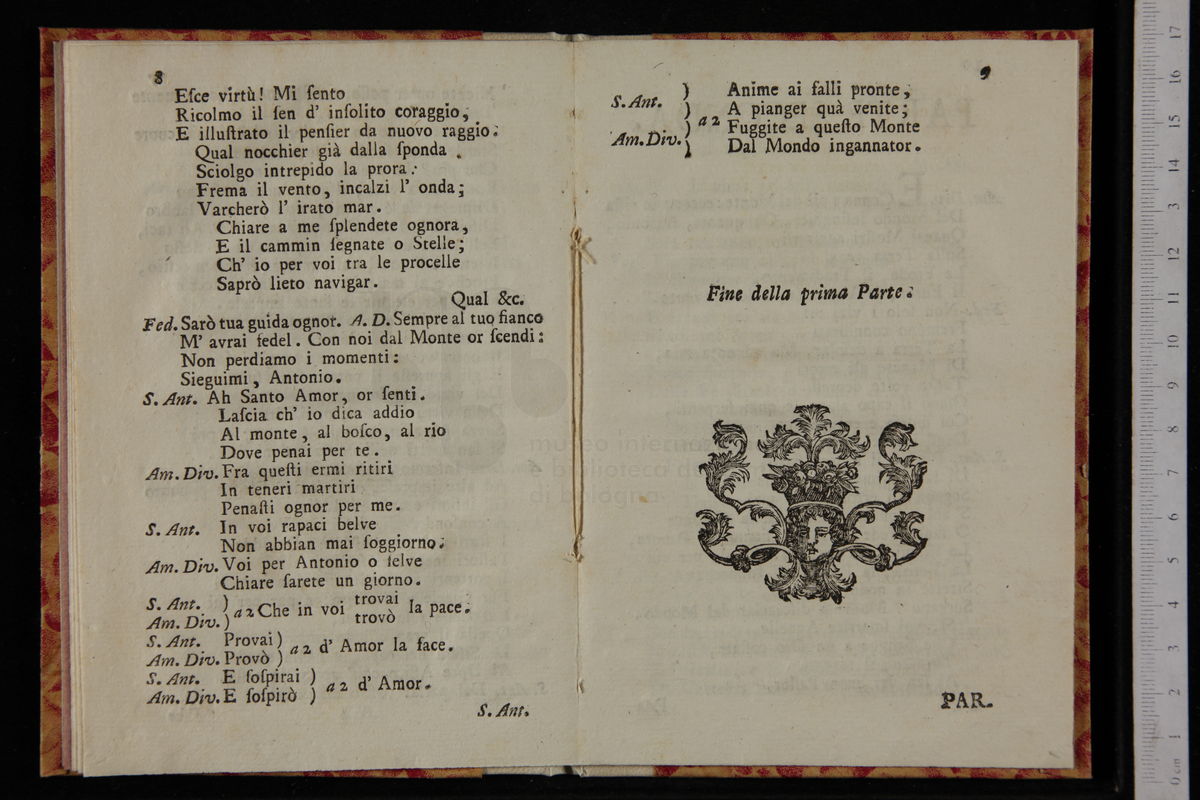 8
Eſce virtù! Mi ſento
Ricolmo il ſen d' inſolito coraggio,
E illuſtrato il penſier da nuovo raggio.
Qual nocchier già dalla ſponda
Sciolgo intrepido la prora:
Frema il vento, incalzi l' onda;
Varcherò l' irato mar.
Chiare a me ſplendete ognora,
E il cammin ſegnate o Stelle;
Ch' io per voi tra le procelle
Saprò lieto navigar.
Qual &c.
Fed. Sarò tua guida ognor. A. D. Sempre al tuo fianco
M' avrai fedel. Con noi dal Monte or ſcendi:
Non perdiamo i momenti:
Sieguimi, Antonio.
S. Ant. Ah Santo Amor, or ſenti.
Laſcia ch' io dica addio
Al monte, al boſco, al rio
Dove penai per te.
Am. Div. Fra queſti ermi ritiri
In teneri martiri
Penaſti ognor per me.
S. Ant. In voi rapaci belve
Non abbian mai ſoggiorno.
Am. Div. Voi per Antonio o ſelve
Chiare ſarete un giorno.
S. Ant. ) a 2 Che in voi trovai la pace.
Am. Div. ) trovò
S. Ant. Provai ) a 2 d' Amor la face.
Am. Div. Provò )
S. Ant. E ſoſpirai ) a 2 d' Amor.
Am. Div. E ſoſpirò )
S. Ant.
9
S. Ant. ) Anime ai falli pronte,
) a 2 A pianger quà venite;
Am. Div. ) Fuggite a queſto Monte
) Dal Mondo ingannator.
Fine della prima Parte.
PAR.
museo interna
e biblioteca de
di bologna
17
16
15
14
13
12
11
10
9
8
7
6
5
4
3
2
1
0 cm